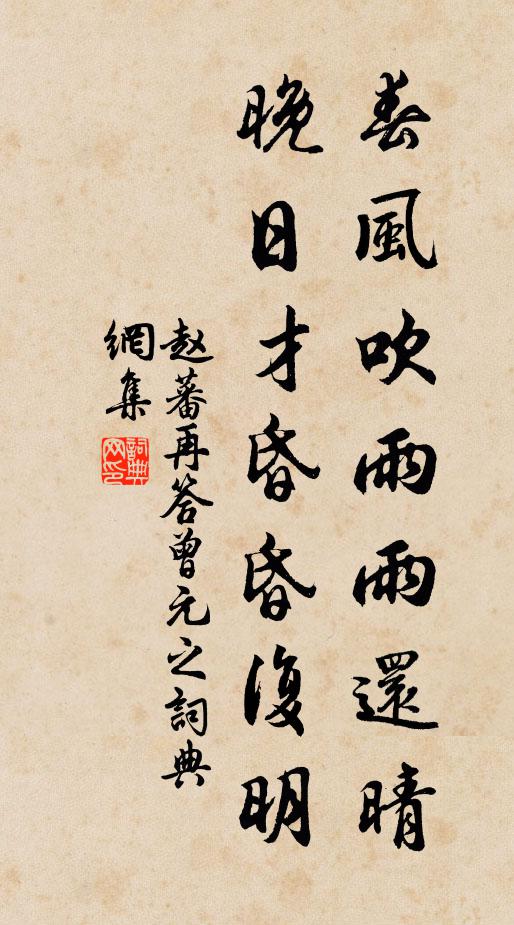 春風吹雨雨還晴
晚日才昏昏復明
赵蕃再答曾元之詞典
網集
詞典
网印